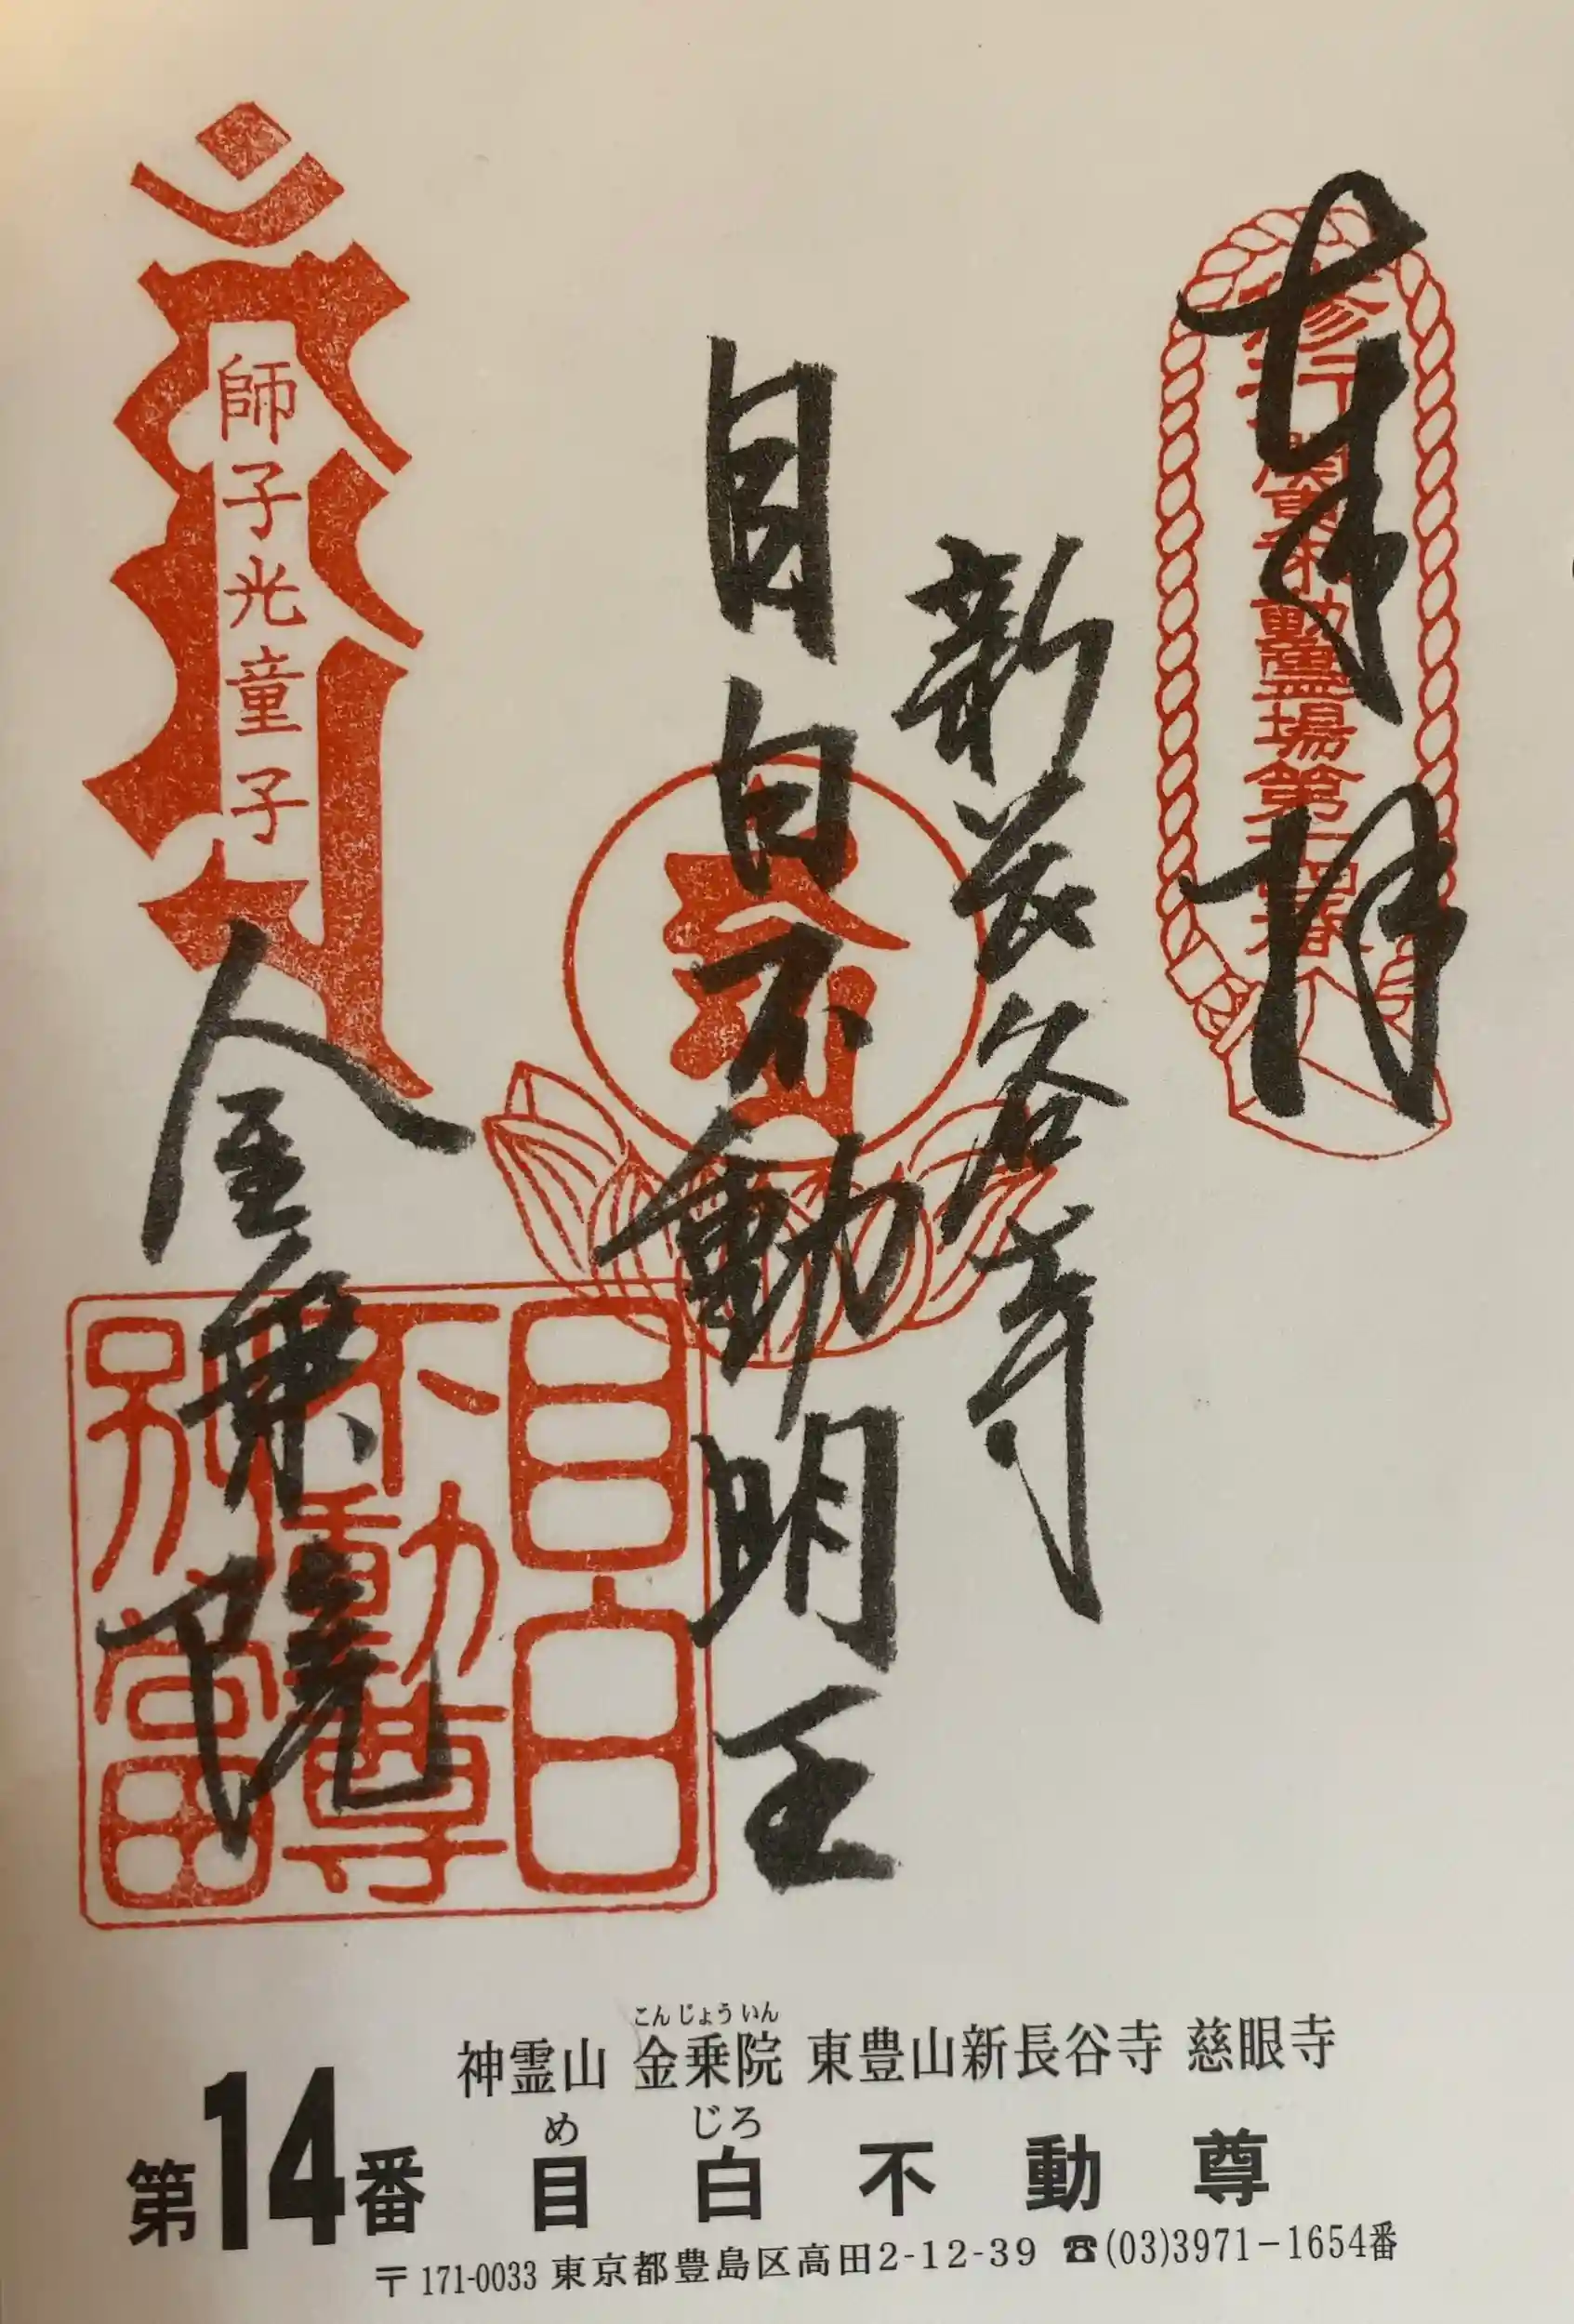 奉拝
修行 関東不動霊場第十四番
新長谷寺
目白不動明王
金乗院
師子光童子
目白
不動尊
別當
こんじょういん
神霊山 金乗院 東豊山新長谷寺 慈眼寺
め じろ
第14番 目白不動尊
〒171-0033 東京都豊島区高田2-12-39 ☎(03)3971-1654番